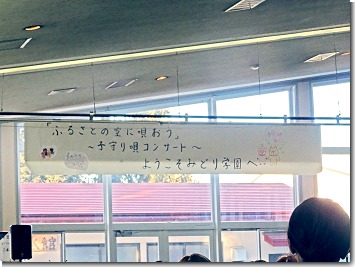 「ふるさとの空に唄おう」
～子守り唄コンサート～
ようこそみどり学園へ